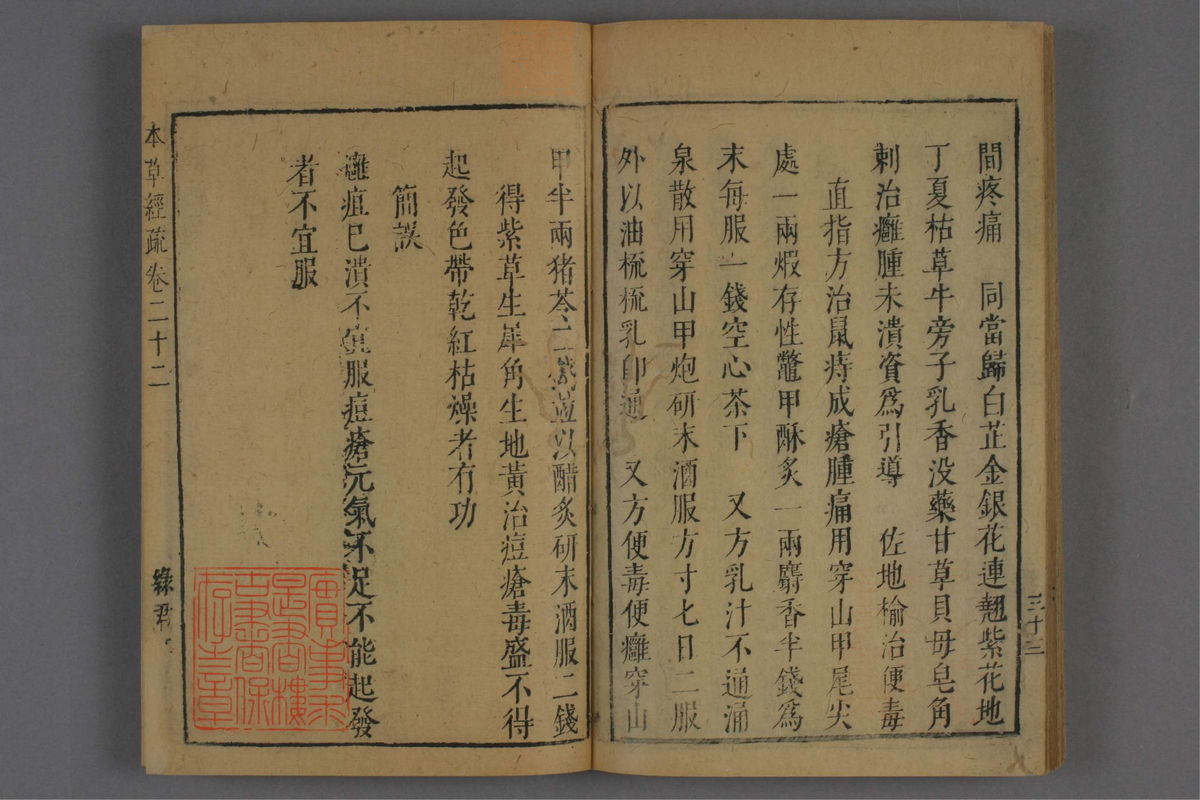 間疼痛　同當歸白芷金銀花連翹紫花地
丁夏枯草牛旁子乳香没藥甘草貝母皂角
刺治癰腫未潰資爲引導　佐地榆治便毒
直指方治鼠痔成瘡腫痛用穿山甲尾尖
處一兩煆存性鼈甲酥炙一兩麝香半錢爲
末每服一錢空心茶下　又方乳汁不通涌
泉散用穿山甲炮研末酒服方寸匕日二服
外以油梳梳乳卽通　又方便毒便癰穿山
三十三
甲半兩猪苓二錢並以醋炙研末酒服二錢
得紫草生犀角生地黃治痘瘡毒盛不得
起發色帶乾紅枯燥者有功
簡誤
癰疽已潰不宜服痘瘡元氣不足不能起發
者不宜服
本草經疏卷二十二
綠君